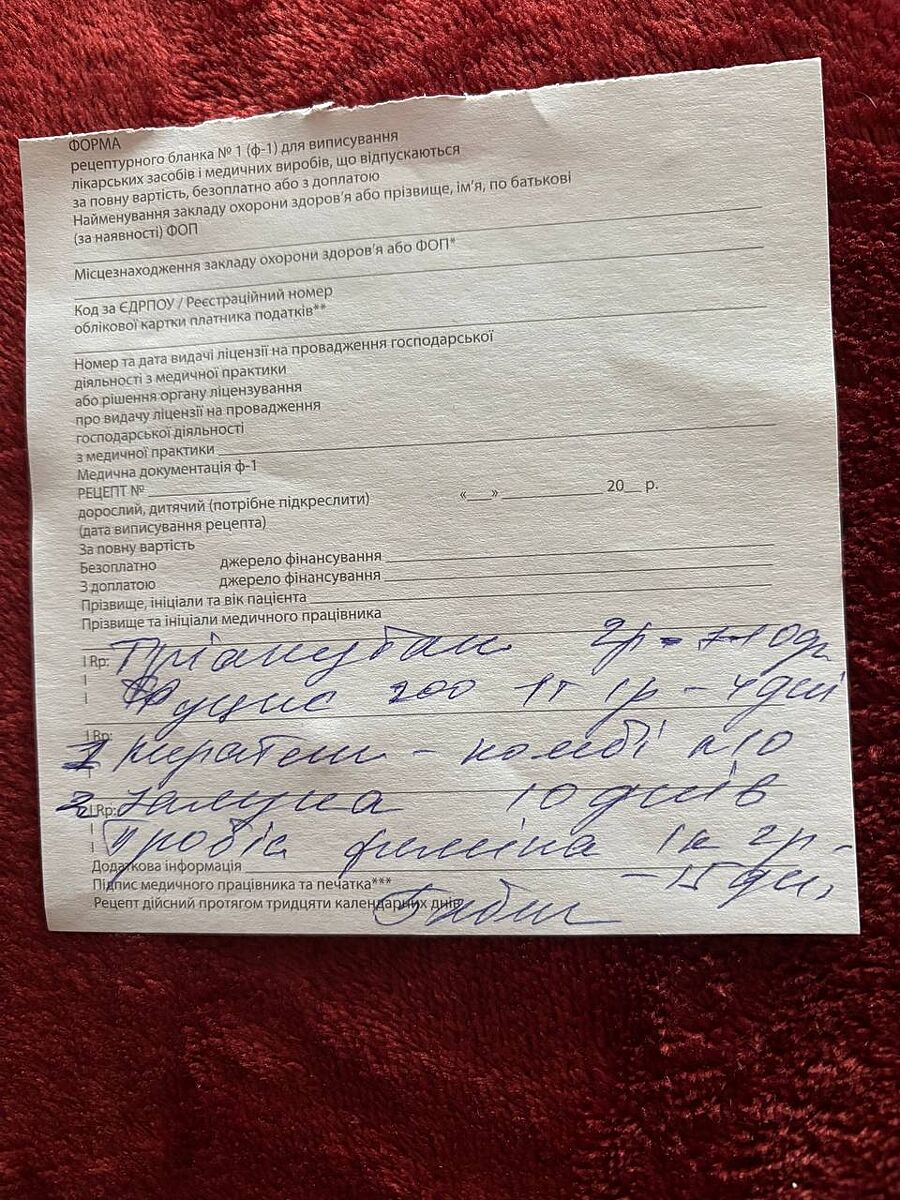 ФОРМА
рецептурного бланка № 1 (ф-1) для виписування
лікарських засобів і медичних виробів, що відпускаються
за повну вартість, безоплатно або з доплатою
Найменування закладу охорони здоров'я або прізвище, ім'я, по батькові
(за наявності) ФОП
Місцезнаходження закладу охорони здоров'я або ФОП*
Код за ЄДРПОУ / Реєстраційний номер
облікової картки платника податків**
Номер та дата видачі ліцензії на провадження господарської
діяльності з медичної практики
або рішення органу ліцензування
про видачу ліцензії на провадження
господарської діяльності
з медичної практики
Медична документація ф-1
РЕЦЕПТ №
дорослий, дитячий (потрібне підкреслити) «___» ________ 20__ р.
(дата виписування рецепта)
За повну вартість
Безоплатно джерело фінансування
З доплатою джерело фінансування
Прізвище, ініціали та вік пацієнта
Прізвище та ініціали медичного працівника
Rp: 2р
Фуцис 200 1т 1р - 4 дні
Rp: - комбі n10
2 Rp: Залуна 10 днів
Пробіз феміна 1к 2р -
Додаткова інформація - 15 дн,
Підпис медичного працівника та печатка***
Рецепт дійсний протягом тридцяти календарних днів